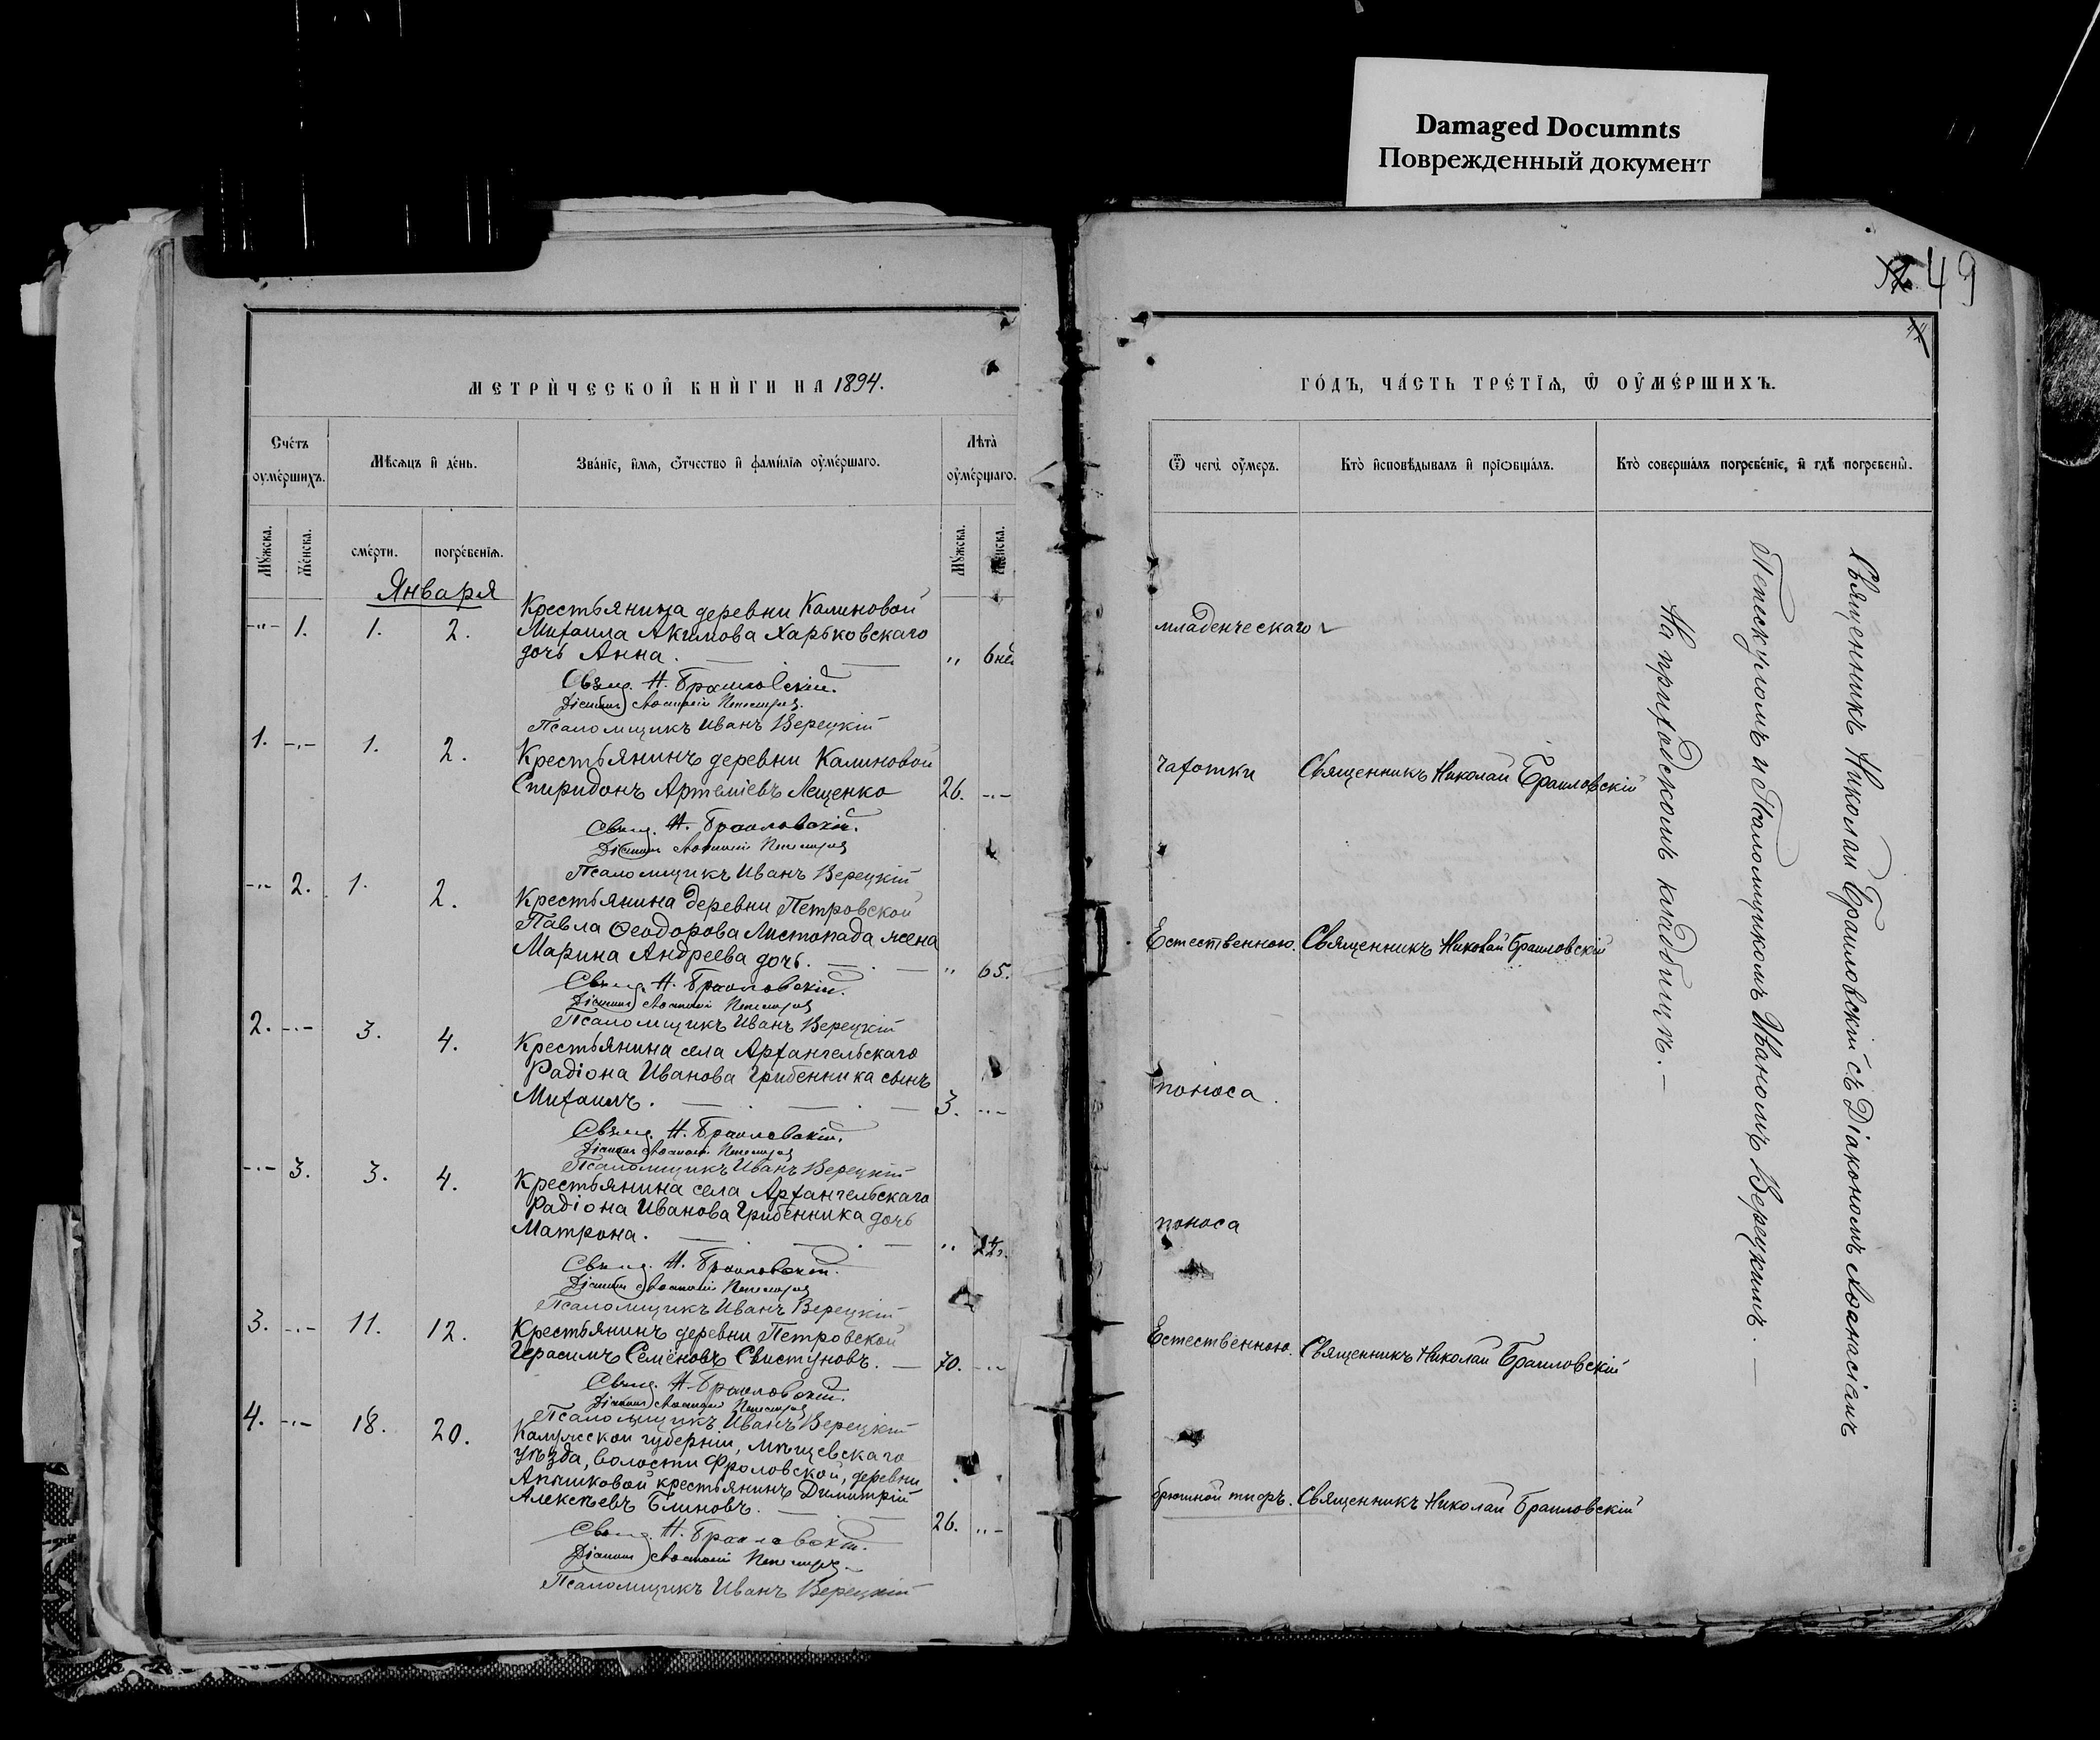 Damaged Documnts
Поврежденный документ
49
МЕТРИЧЕСКОЙ КНИГИ НА 1894.
Счетъ умершихъ.
Мѣсяцъ и день.
Званіе, имя, отчество и фамилія умершаго.
Лѣта умершаго.
Мужска.
Женска.
смерти.
погребенія.
Мужска.
Женска.
Января
-"- 1. 1. 2.
Крестьянина деревни Калиновой
Михаила Акимова Харьковскаго
дочь Анна. " 6 нед
Свящ. Н. Браиловскій.
Діаконъ Аѳанасій
Псаломщикъ Иванъ Верецкій
1. -"- 1. 2.
Крестьянинъ деревни Калиновой
Спиридонъ Артеміевъ Лещенко 26. -"-
Свящ. Н. Браиловскій.
Діаконъ Аѳанасій
Псаломщикъ Иванъ Верецкій
-"- 2. 1. 2.
Крестьянина деревни Петровской
Павла Ѳеодорова Листопада жена
Марина Андреева дочь. " 65.
Свящ. Н. Браиловскій.
Діаконъ Аѳанасій
Псаломщикъ Иванъ Верецкій
2. -"- 3. 4.
Крестьянина села Архангельскаго
Радіона Иванова Грибенника сынъ
Михаилъ. 3. -"-
Свящ. Н. Браиловскій.
Діаконъ Аѳанасій
Псаломщикъ Иванъ Верецкій
-"- 3. 3. 4.
Крестьянина села Архангельскаго
Радіона Иванова Грибенника дочь
Матрона. "
Свящ. Н. Браиловскій.
Діаконъ Аѳанасій
Псаломщикъ Иванъ Верецкій
3. -"- 11. 12.
Крестьянинъ деревни Петровской
Герасимъ Семеновъ Свистуновъ. 70. -"-
Свящ. Н. Браиловскій.
Діаконъ Аѳанасій
Псаломщикъ Иванъ Верецкій
4. -"- 18. 20.
Калужской губерніи, Мещевскаго
уѣзда, волости Фроловской, деревни
крестьянинъ Димитрій
Алексѣевъ Блиновъ. 26. "-
Свящ. Н. Браиловскій.
Діаконъ Аѳанасій
Псаломщикъ Иванъ Верецкій
ГОДЪ, ЧАСТЬ ТРЕТІЯ, Ѿ УМЕРШИХЪ.
Ѿ чего умеръ.
Кто исповѣдывалъ и пріобщалъ.
Кто совершалъ погребеніе, и гдѣ погребены.
младенческаго
чахотки Священникъ Николай Браиловскій
Естественною. Священникъ Николай Браиловскій
поноса.
поноса
Естественною. Священникъ Николай Браиловскій
брюшной тифъ. Священникъ Николай Браиловскій
Священникъ Николай Браиловскій съ Діакономъ Аѳанасіемъ
и Псаломщикомъ Иваномъ Верецкимъ.
На приходскомъ кладбищѣ.